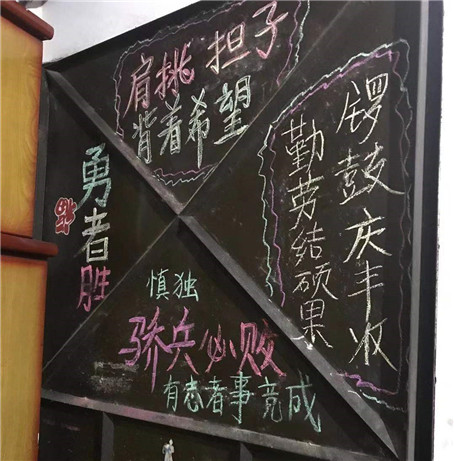 肩挑担子
背着希望
锣鼓庆丰收
勤劳结硕果
勇者胜
慎独
骄兵必败
有志者事竟成